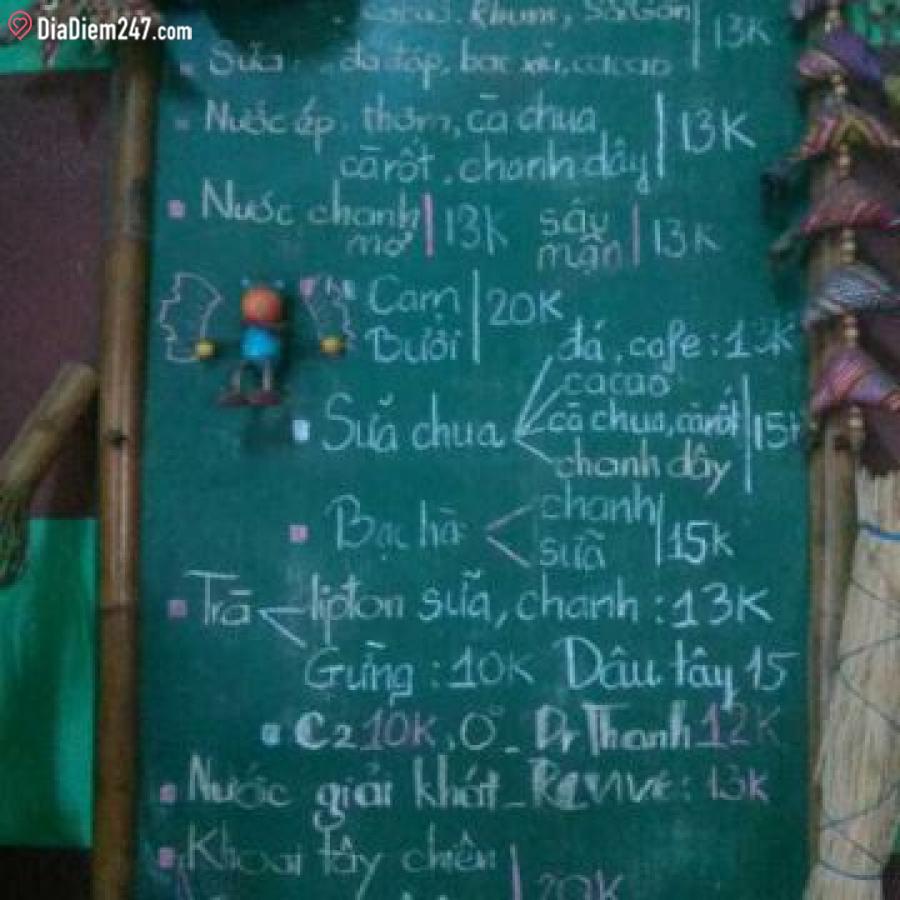 DiaDiem247.com
cacao, Rhum, SàiGòn | 13K
Sữa : đá đập, bạc xỉu, cacao
Nước ép thơm, cà chua, | 13K
cà rốt, chanh dây
Nước chanh | 13K sấu | 13K
mơ mận
Cam | 20K
Bưởi
đá, cafe : 13K
cacao
Sữa chua cà chua, cà rốt | 15K
chanh dây
Bạc hà chanh | 15K
sữa
Trà lipton sữa, chanh : 13K
Gừng : 10K Dâu tây 15
C2 10K, O° - Dr Thanh 12K
Nước giải khát - Revive : 13K
Khoai tây chiên | 20K